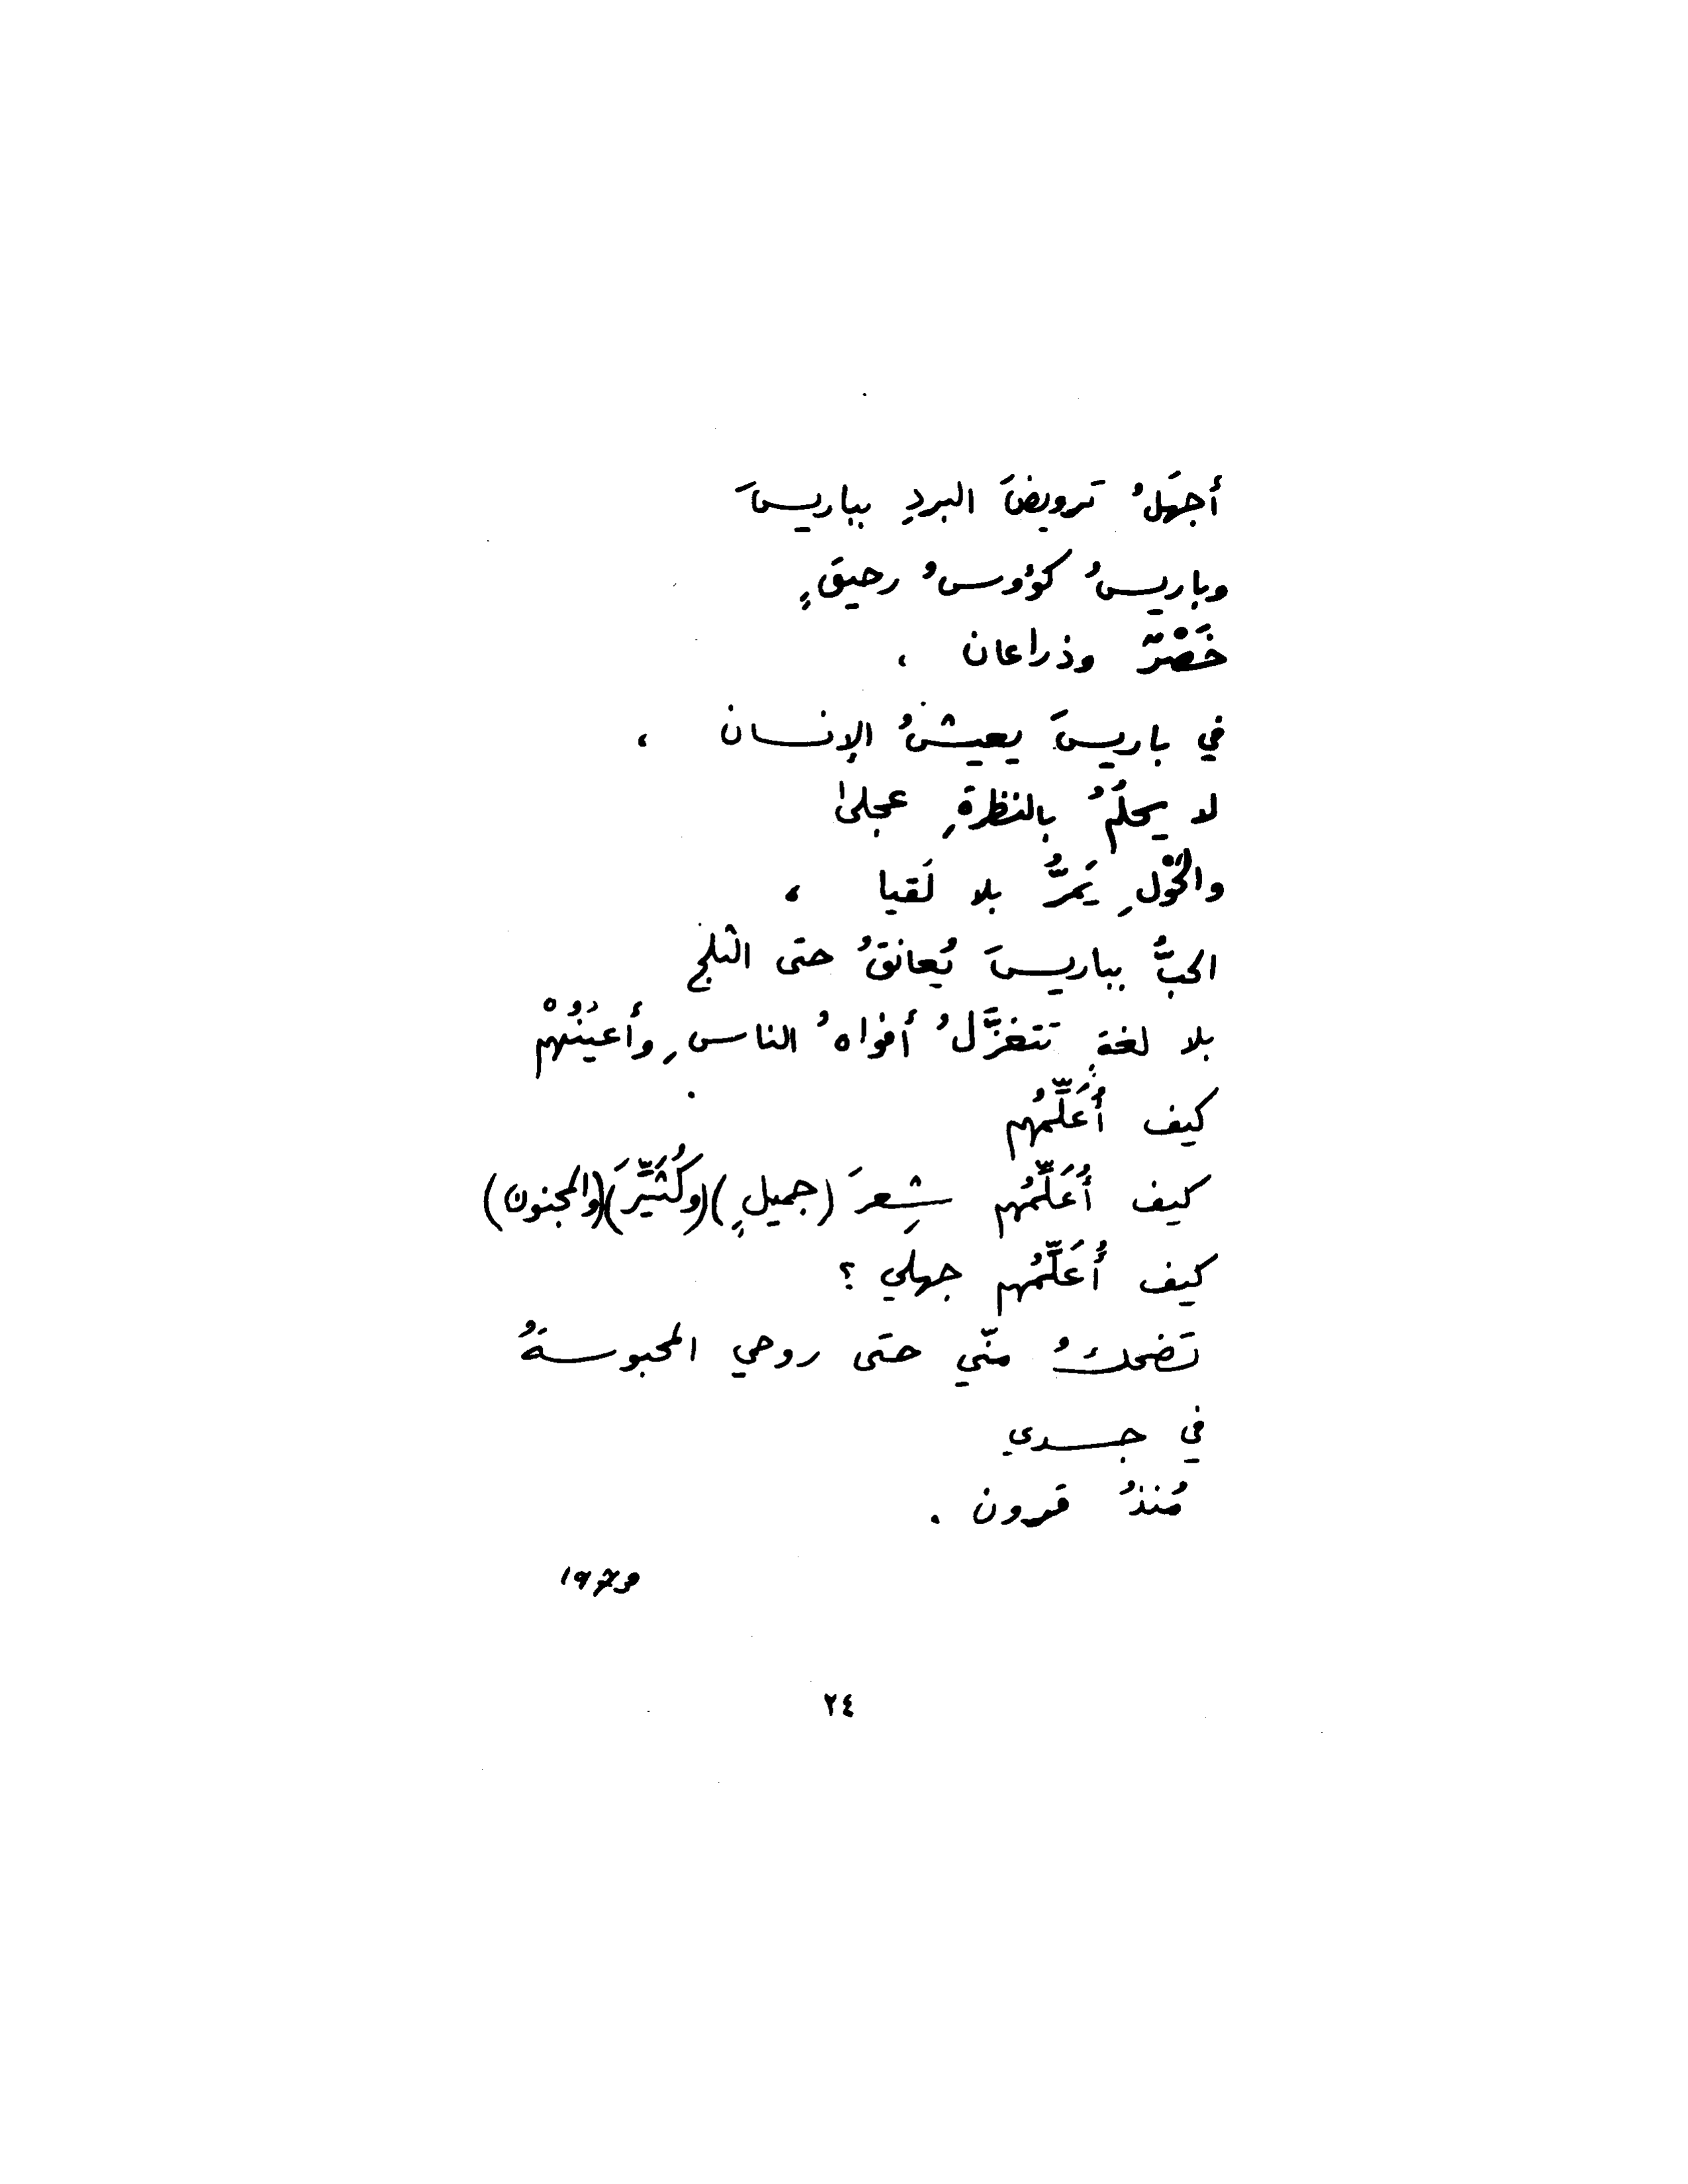 أجهَلُ تَرويضَ البردِ بباريسَ
وباريسُ كؤوسُ رحيقٍ
خَصْرٌ وذراعان ،
في باريسَ يعيشُ الإنسان ،
لا يحلُمُ بالنظرةِ عجلى
والحَوْلِ يَمرُّ بلا لَقيا ،
الحبُّ بباريسَ يُعانقُ حتى الثلج
بلا لغةٍ تتغزَّلُ أفواهُ الناسِ وأعيُنُهمْ
كيف أُعَلِّمُهم
كيف أُعَلِّمُهم شِعرَ (جميلٍ)(وكُثَيِّرَ)(والمجنون)
كيف أُعَلِّمُهم جهلي ؟
تَضحكُ منّي حتى روحي المحبوسةُ
في جسدي
مُنذُ قرون .
٢٤